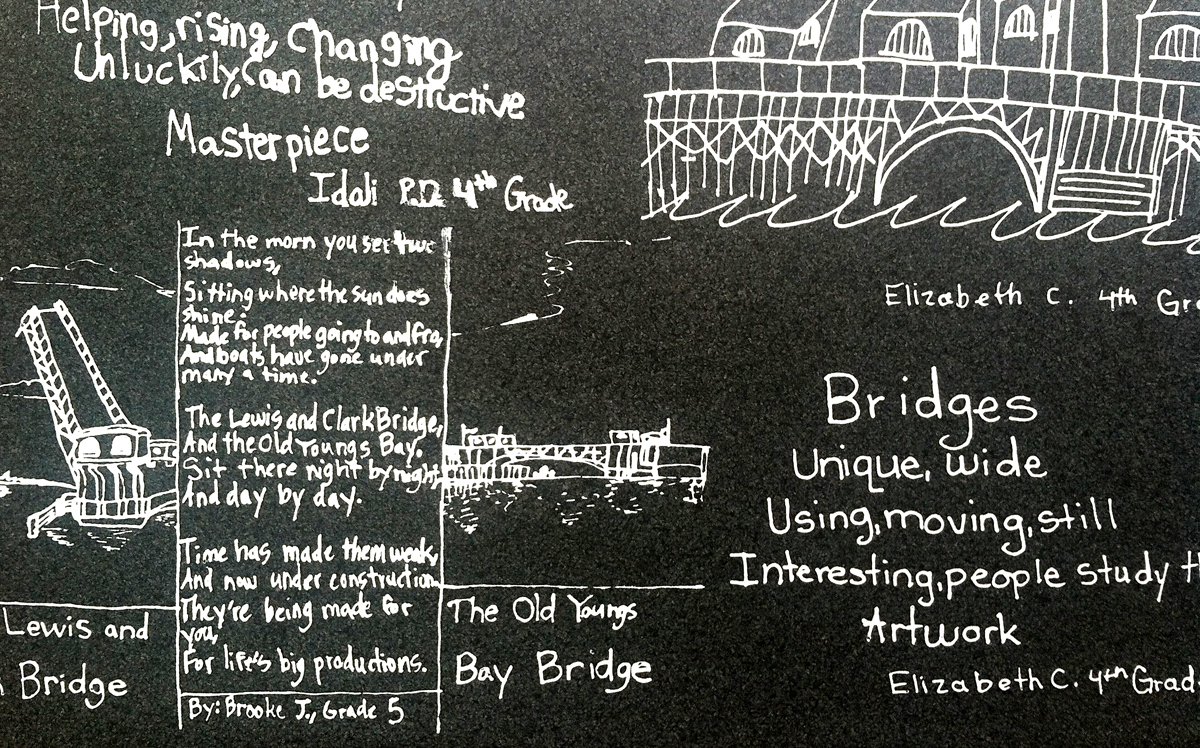 Helping, rising, Changing
Unluckily, Can be destructive
Masterpiece
Idali P.D. 4th Grade
In the morn you see two
shadows,
Sitting where the sun does
shine.
Made for people going to and fro,
And boats have gone under
many a time.
The Lewis and Clark Bridge,
And the Old Youngs Bay.
Sit there night by night,
And day by day.
Time has made them weak,
And now under construction
They're being made for
you,
For life's big productions.
By: Brooke J., Grade 5
Lewis and
Bridge
The Old Youngs
Bay Bridge
Elizabeth C. 4th Gr
Bridges
Unique, wide
Using, moving, still
Interesting, people study th
Artwork
Elizabeth C. 4th Grad